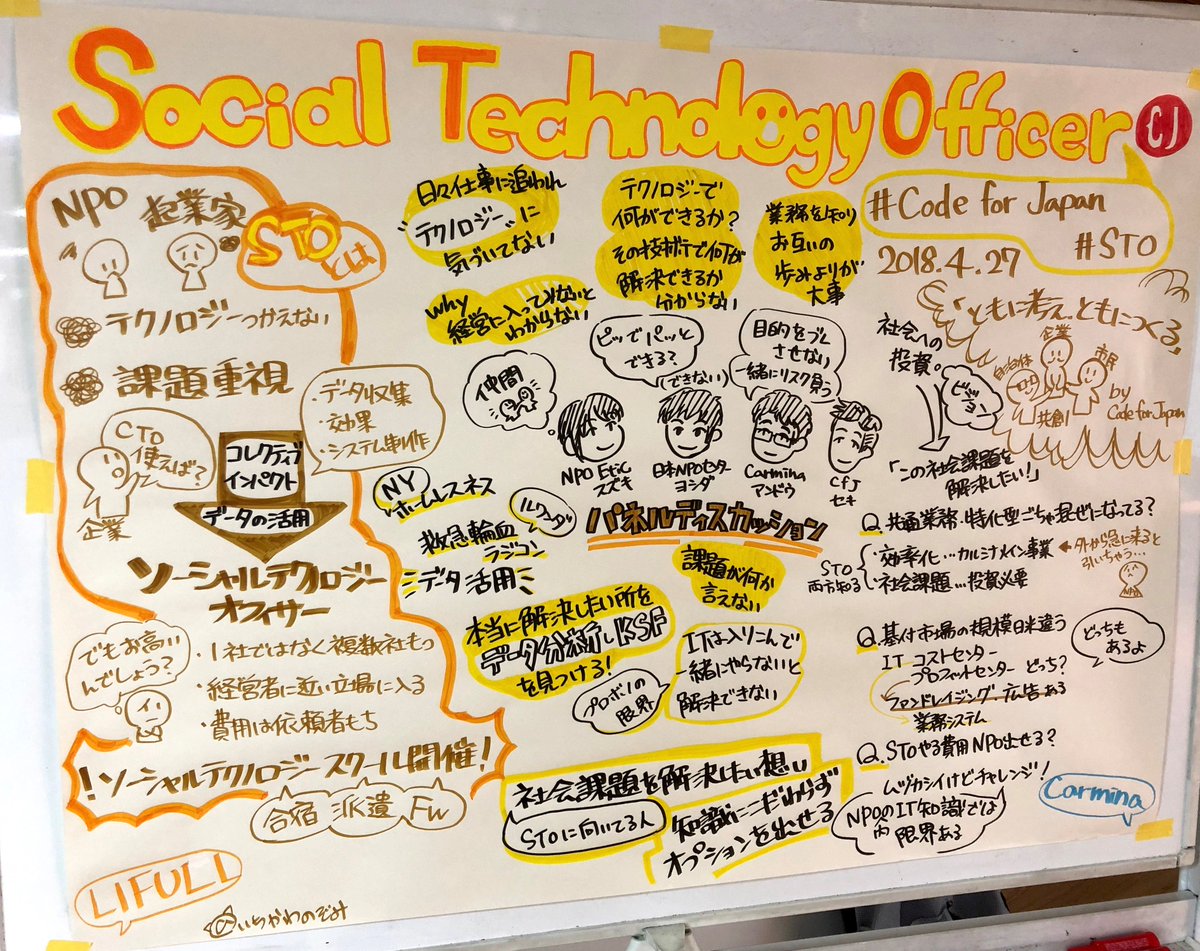 Social Technology Officer
CJ
#Code for Japan
#STO
2018.4.27
NPO 起業家
STOとは
テクノロジーつかえない
課題重視
CTO
使えば?
企業
・データ収集
・効果
・システム制作
コレクティブ
インパクト
データの活用
ソーシャルテクノロジー
オフィサー
でもお高い
んでしょう?
・1社ではなく複数社もつ
・経営者に近い立場に入る
・費用は依頼者もち
!ソーシャルテクノロジースクール開催!
合宿 派遣 FW
LIFULL
いちかわのぞみ
日々仕事に追われ
"テクノロジー"に
気づいてない
why
経営に入ってかないと
わからない
テクノロジーで
何ができるか?
その技術で何が
解決できるか
分からない
業務を知り
お互いの
歩みよりが
大事
仲間
ピッでパッと
できる?
(できない)
目的をブレ
させない
一緒にリスク負う
NPO Etic
スズキ
日本NPOセンター
ヨシダ
Carmina
アンドウ
CfJ
セキ
パネルディスカッション
NY
ホームレスネス
ルワンダ
救急輸血
ラジコン
データ活用
課題が何か
言えない
本当に解決したい所を
データ分析しKSF
を見つける!
プロボノの
限界
ITは入りこんで
一緒にやらないと
解決できない
社会課題を解決したい想い
STOに向いてる人
知識にこだわらず
オプションを出せる
「ともに考え、ともにつくる」
企業
自治体
市民
共創
by
Code for Japan
社会への
投資。
ビジョン
「この社会課題を
解決したい!」
Q. 共通業務・特化型ごちゃ混ぜになってる?
STO
両方知る
・効率化…カルミナメイン事業
・社会課題…投資必要
外から急に来ると
引いちゃう…
NPO
Q. 寄付市場の規模日米違う
IT コストセンター
プロフィットセンター どっち?
どっちも
あるよ
ファンドレイジング・広告ある
業務システム
Q. STOやる費用NPO出せる?
ムヅカシイけどチャレンジ!
NPOのIT知識では
限界ある
Carmina